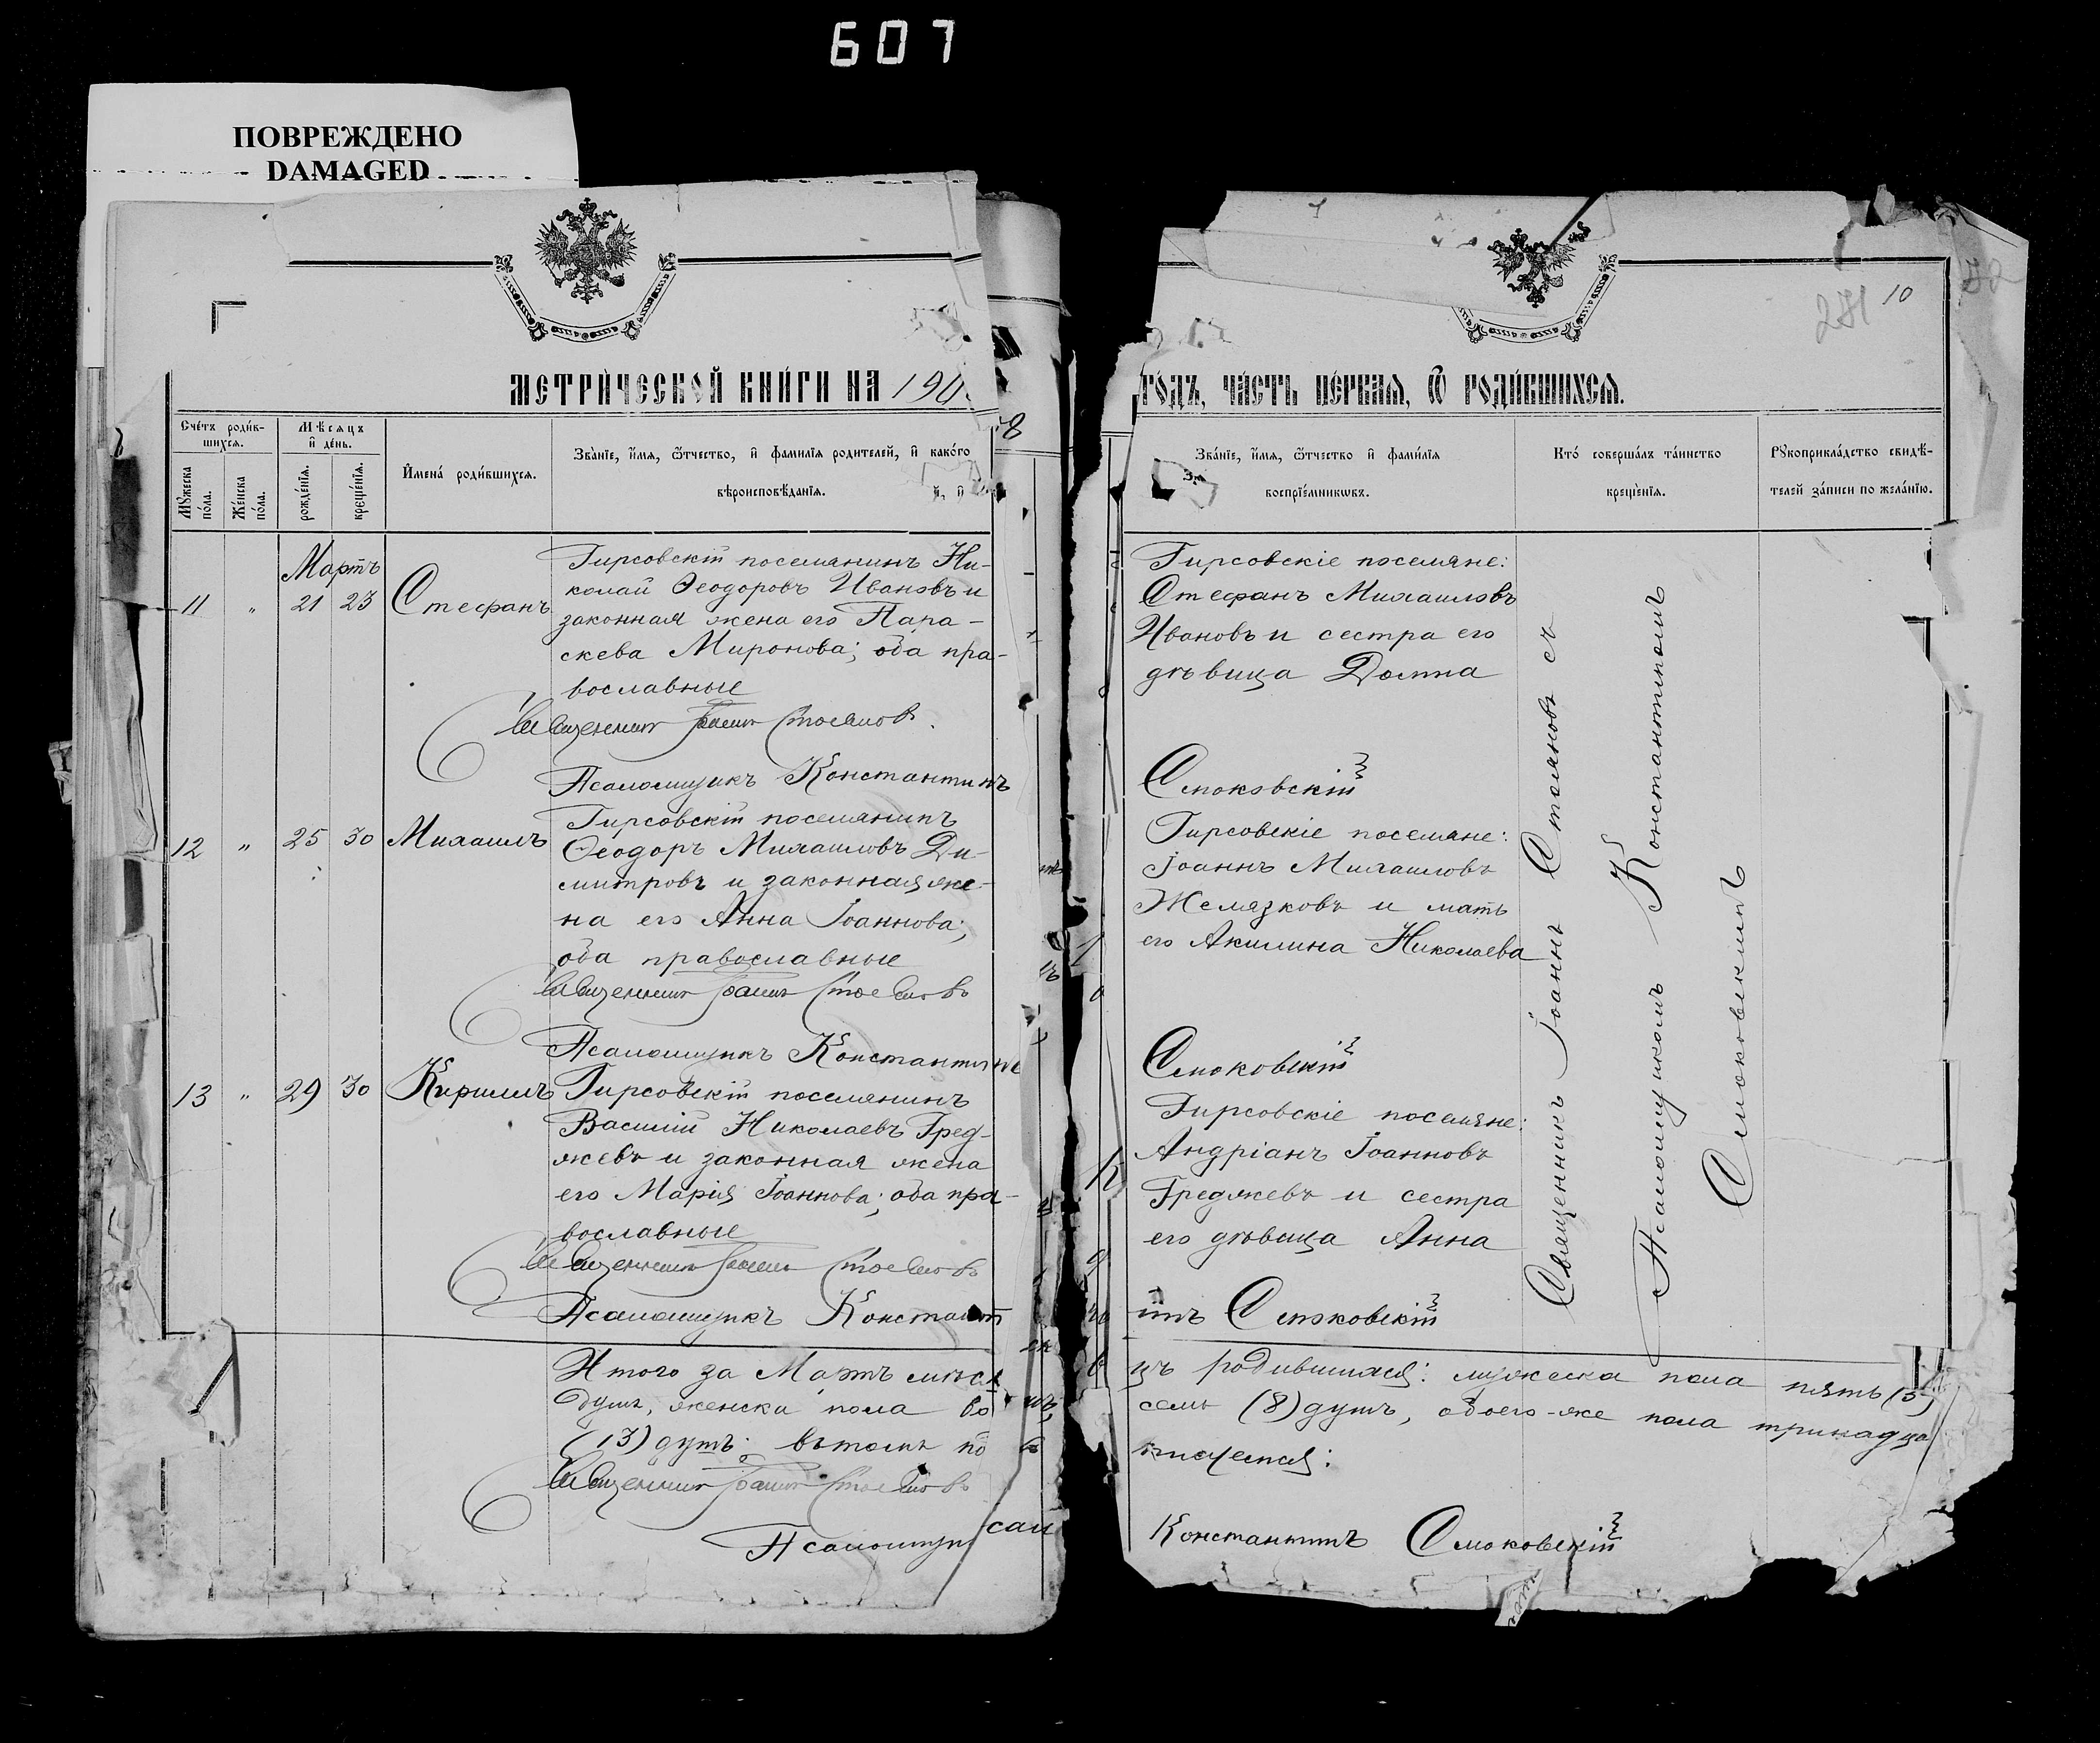 607
ПОВРЕЖДЕНО
DAMAGED
281 10
МЕТРИ́ЧЕСКОЙ КНИ́ГИ НА 190
8
ГО́ДЪ, ЧА́СТЬ ПЕ́РВАЯ, Ѿ РОДИ́ВШИХСЯ.
Сче́тъ роди́в-
шихся.
Мꙋжеска по́ла.
Же́нска по́ла.
Мѣ́сяцъ
и҆ де́нь.
рожде́нїя.
креще́нїя.
И҆мена́ роди́вшихся.
Зва́нїе, и҆́мя, ѻ҆́тчество, и҆ фами́лїя родителей, и҆ како́го
вѣроисповѣ́данїя.
Зва́нїе, и҆́мя, ѻ҆́тчество и҆ фами́лїя
воспрїе́мникѡвъ.
Кто́ соверша́лъ та́инство
креще́нїя.
Рꙋкоприкла́дство свидѣ́-
телей за́писи по жела́нїю.
Мартъ
11 " 21 23 Стефанъ
Гирсовскій поселянинъ Ни-
колай Ѳеодоровъ Ивановъ и
законная жена его Пара-
скева Миронова; оба пра-
вославные
Священникъ Іоаннъ Стояновъ.
Псаломщикъ Константинъ
Гирсовскіе поселяне:
Стефанъ Михаиловъ
Ивановъ и сестра его
дѣвица Домна
Смоковскій
12 " 25 30 Михаилъ
Гирсовскій поселянинъ
Ѳеодоръ Михаиловъ Ди-
митровъ и законная же-
на его Анна Іоаннова;
оба православные
Священникъ Іоаннъ Стояновъ
Псаломщикъ Константинъ
Гирсовскіе поселяне:
Іоаннъ Михаиловъ
Желязковъ и мать
его Акилина Николаева
Смоковскій
13 " 29 30 Кириллъ
Гирсовскій поселянинъ
Василій Николаевъ Гред-
жевъ и законная жена
его Марія Іоаннова; оба пра-
вославные
Священникъ Іоаннъ Стояновъ
Псаломщикъ Констант
Гирсовскіе поселяне:
Андріанъ Іоанновъ
Греджевъ и сестра
его дѣвица Анна
инъ Смоковскій
Священникъ Іоаннъ Стояновъ съ
Псаломщикомъ Константиномъ
Смоковскимъ
Итого за Мартъ мѣся
цъ родившихся: мужеска пола пять (5)
душъ, женска пола во
семь (8) душъ, обоего-же пола тринадца
(13) душъ; въ томъ по
писуемся:
Священникъ Іоаннъ Стояновъ
Псаломщи
Константинъ Смоковскій